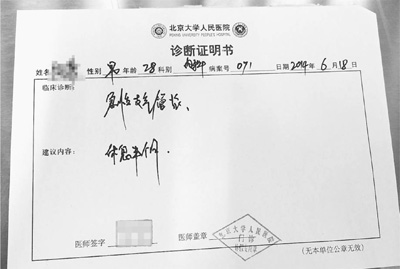 北京大学人民医院
PEKING UNIVERSITY PEOPLE'S HOSPITAL
诊断证明书
姓名 性别 男 年龄 28 科别 内科 病案号 071 日期 2014年6月18日
临床诊断:
急性支气管炎
建议内容:
休息半个月.
医师签字 医师盖章 (无本单位公章无效)
北京大学人民医院